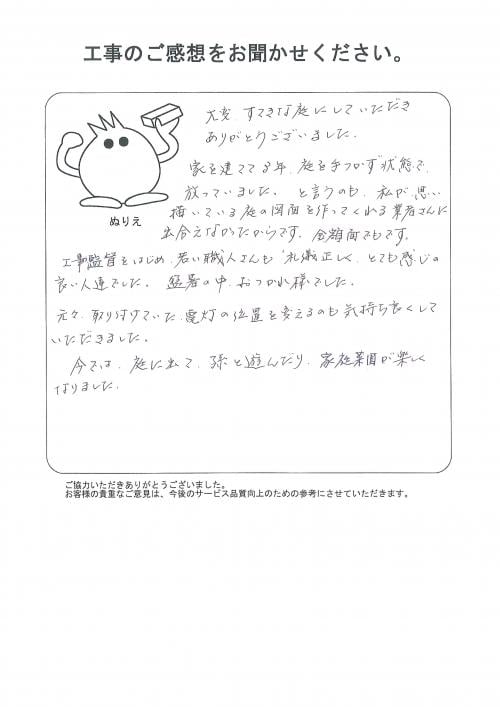 工事のご感想をお聞かせください。
大変 すてきな庭にしていただき
ありがとうございました。
家を建てて8年、庭を手つかず状態で、
放っていました。 と言うのも、私が思い
描いている庭の図面を作ってくれる業者さんに
出合えなかったからです。金額面でもです。
ぬりえ
工事監督をはじめ、若い職人さんも礼儀正しく、とても感じの
良い人達でした。 猛暑の中、おつかれ様でした。
元々、取り付けていた電灯の位置を変えるのも気持ち良くして
いただきました。
今では、庭に出て、孫と遊んだり、家庭菜園が楽しく
なりました。
ご協力いただきありがとうございました。
お客様の貴重なご意見は、今後のサービス品質向上のための参考にさせていただきます。